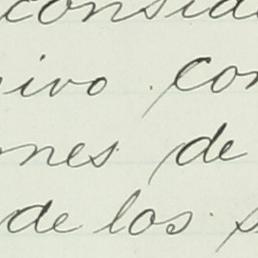 consid
ivo con
nes de
de los s